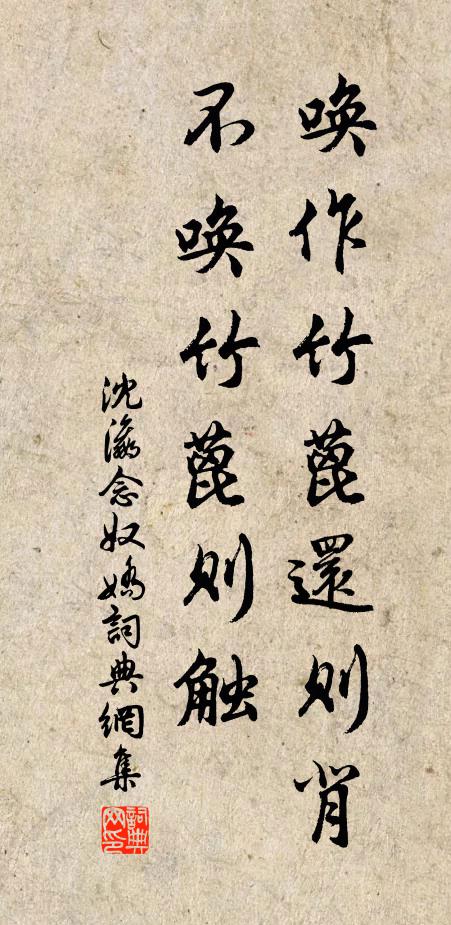 唤作竹蓖還则背
不唤竹蓖则触
沈瀛念奴嬌詞典網集
詞典网印